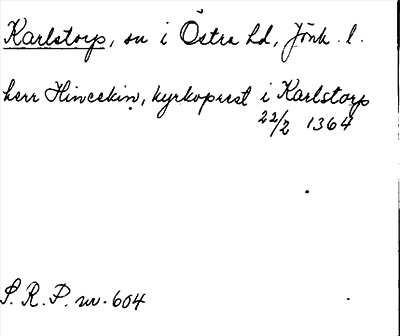 Karlstorp, sn i Östra hd, Jönk. l.
herr Hincekin, kyrkoprest i Karlstorp
22/2 1364
S. R. P. nr. 604